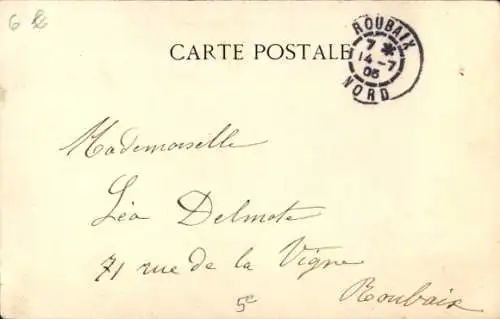 CARTE POSTALE
ROUBAIX
7 *
14 -7
05
NORD
Mademoiselle
Léa Delmote
71 rue de la Vigne
Roubaix
5c